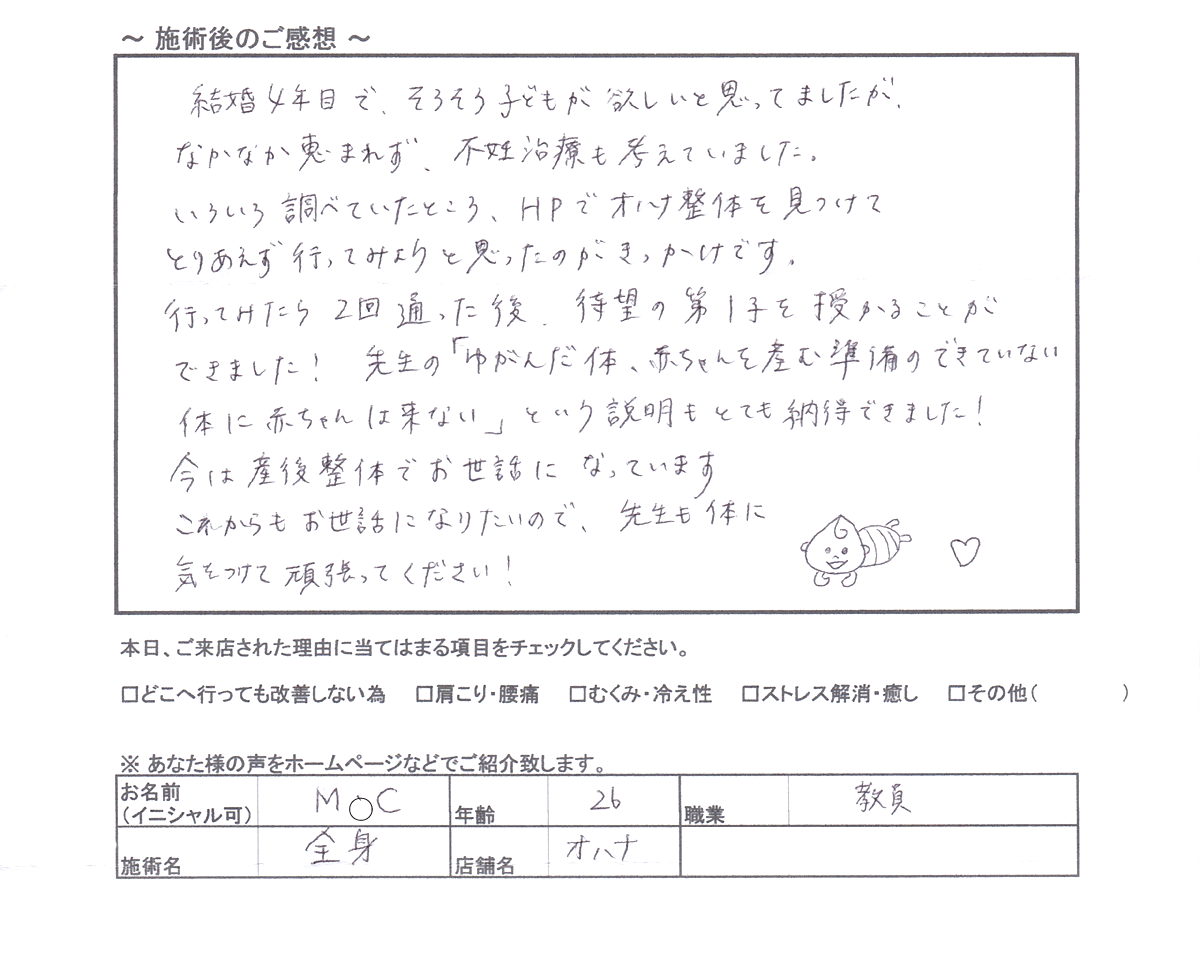 ～ 施術後のご感想 ～
結婚4年目で、そろそろ子どもが欲しいと思ってましたが、
なかなか恵まれず、不妊治療も考えていました。
いろいろ調べていたところ、HPでオハナ整体を見つけて
とりあえず行ってみようと思ったのがきっかけです。
行ってみたら2回通った後、待望の第1子を授かることが
できました! 先生の「ゆがんだ体、赤ちゃんを産む準備のできていない
体に赤ちゃんは来ない」という説明もとても納得できました!
今は産後整体でお世話になっています
これからもお世話になりたいので、先生も体に
気をつけて頑張ってください!
本日、ご来店された理由に当てはまる項目をチェックしてください。
□どこへ行っても改善しない為 □肩こり・腰痛 □むくみ・冷え性 □ストレス解消・癒し □その他( )
※ あなた様の声をホームページなどでご紹介致します。
お名前
(イニシャル可) M○C 年齢 26 職業 教員
施術名 全身 店舗名 オハナ